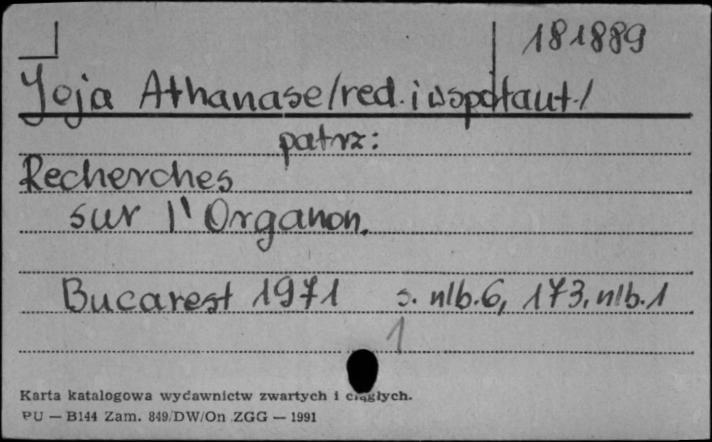 181889
Joja Athanase/red. i współaut./
patrz:
Recherches
sur l'Organon.
Bucarest 1971 s. nlb. 6, 173, nlb. 1
1
Karta katalogowa wydawnictw zwartych i ciągłych.
PU — B144 Zam. 849/DW/On ZGG — 1991